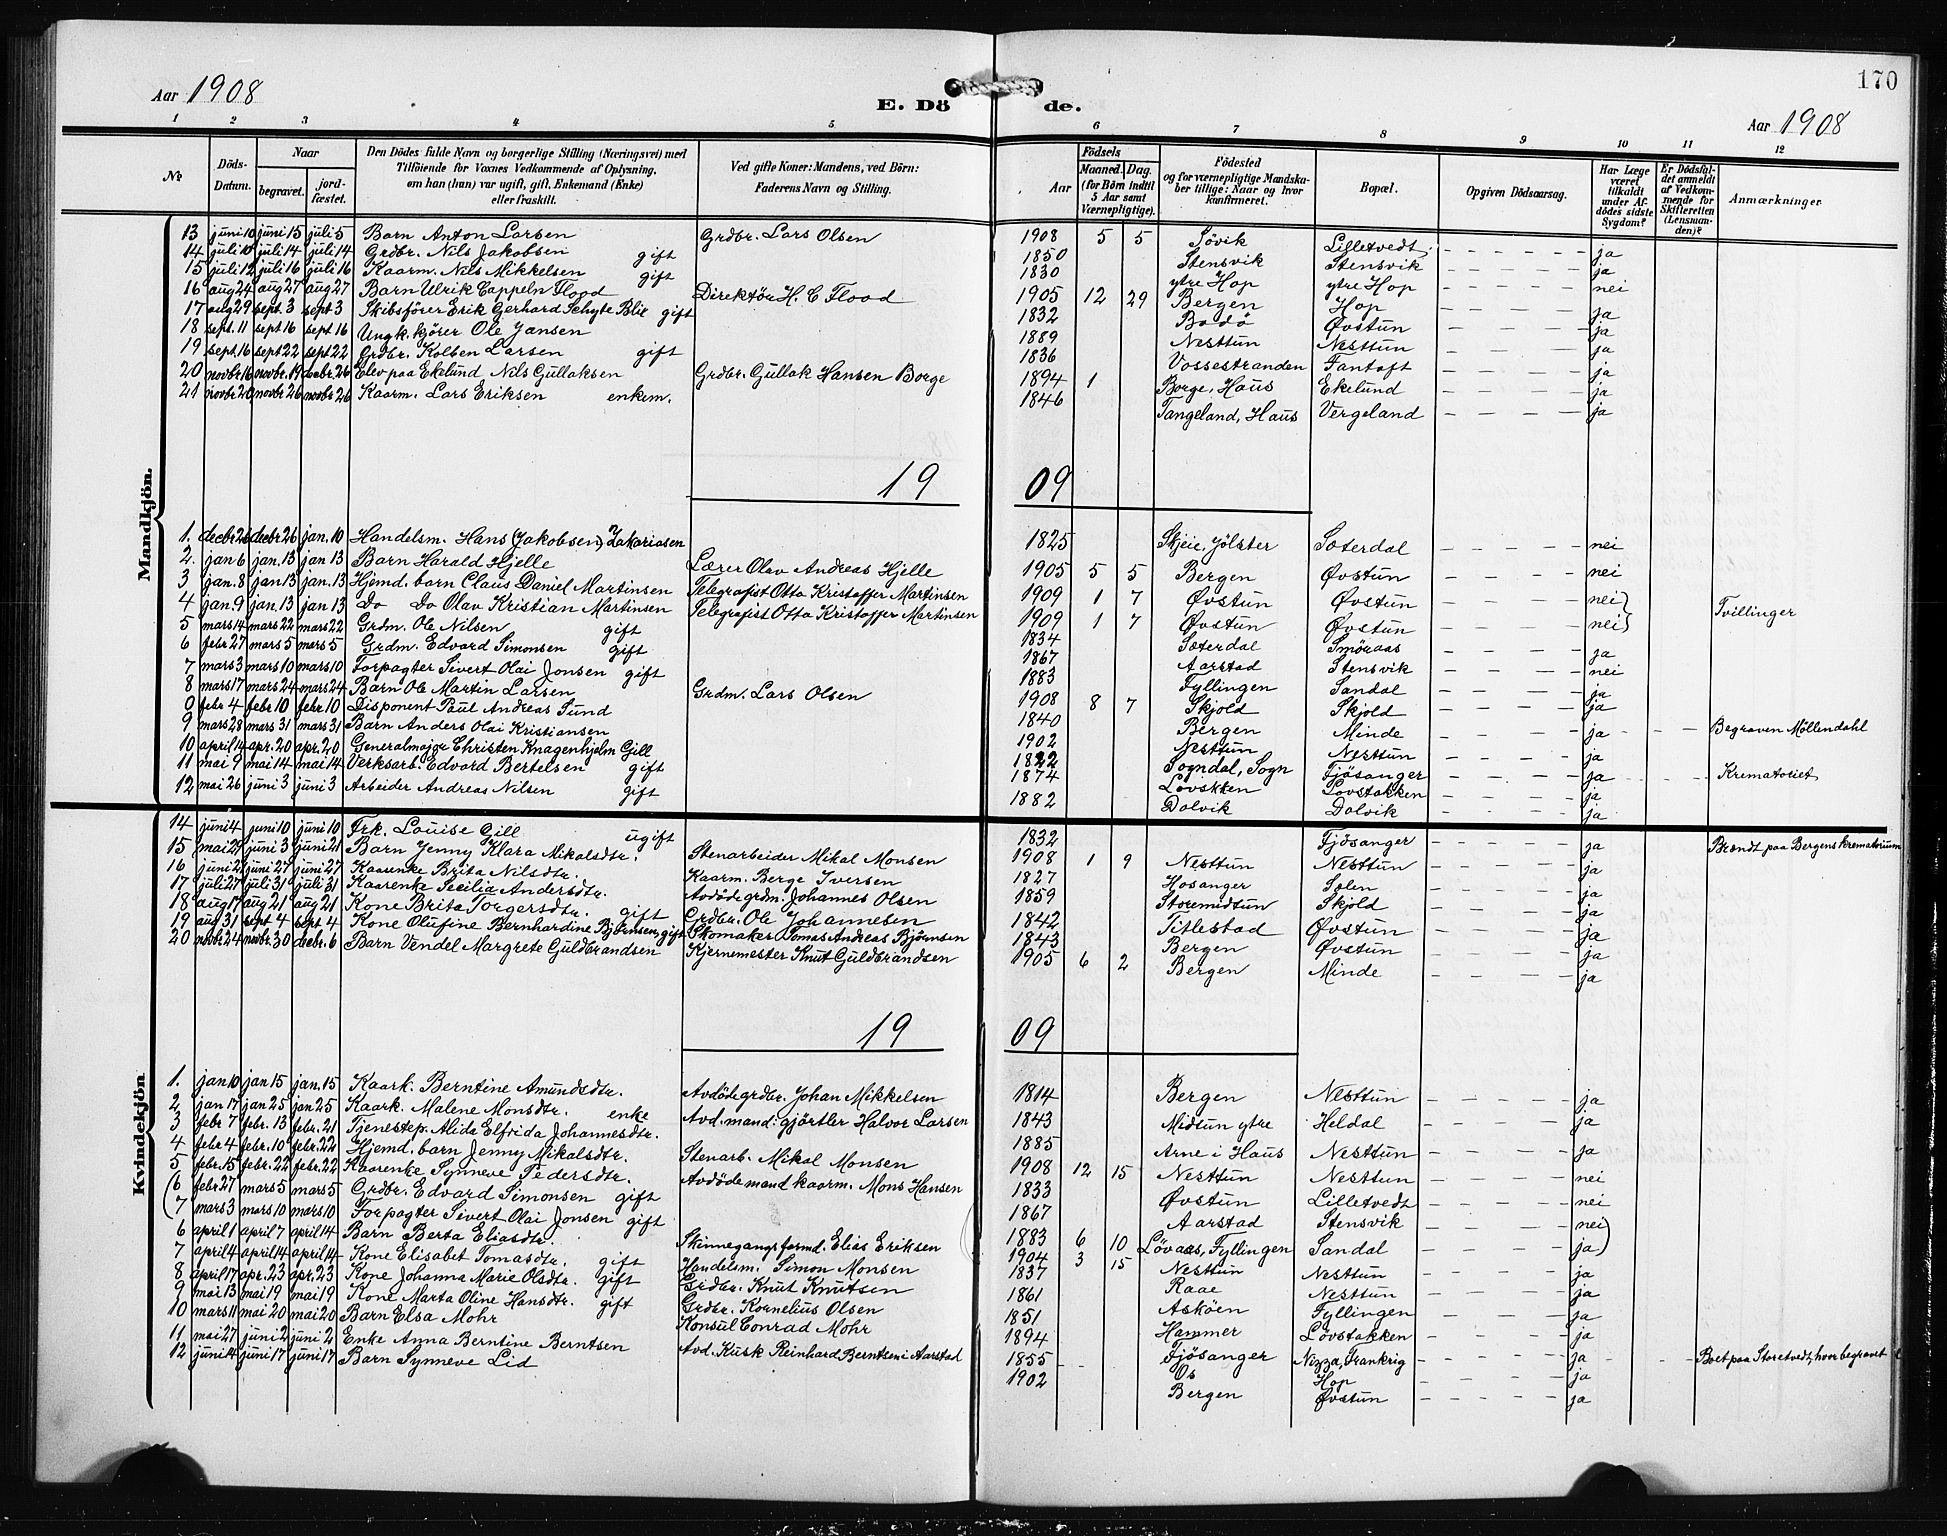 Aar 1908
E. Dö de.
Aar 1908
170
1 2 3 4 5 6 7 8 9 10 11 12
No
Döds-Datum.
Naar
begravet.
jordfæstet.
Den Dödes fulde Navn og borgerlige Stilling (Næringsvei) med Tilföiende for Voxnes Vedkommende af Oplysning, om han (hun) var ugift, gift, Enkemand (Enke) eller fraskilt.
Ved gifte Koner: Mandens, ved Börn: Faderens Navn og Stilling.
Födsels
Aar
Maaned. Dag.
(for Börn indtil 5 Aar samt Værnepligtige).
Födested og for værnepligtige Mandskaber tillige: Naar og hvor konfirmeret.
Bopæl.
Opgiven Dödsaarsag.
Har Læge været tilkaldt under Afdödes sidste Sygdom?
Er Dödsfaldet anmeldt af Vedkommende for Skifteretten (Lensmanden)?
Anmærkninger
Mandkjön.
13 juni 10 juni 15 juli 5 Barn Anton Larsen Grdbr. Lars Olsen 1908 5 5 Søvik Lilletvedt ja
14 juli 10 juli 14 juli 14 Grdbr. Nils Jakobsen gift 1850 Stensvik Stensvik ja
15 juli 12 juli 16 juli 16 Kaarm. Nils Mikkelsen gift 1830 ytre Hop ytre Hop nei
16 aug 24 aug 27 aug 27 Barn Ulrik Cappeln Flood Direktør H. C Flood 1905 12 29 Bergen Hop ja
17 aug 29 sept. 3 sept 3 Skibsfører Erik Gerhard Schyte Blie gift 1832 Bodø Øvstun ja
18 sept. 11 sept 16 sept. 16 Ungk. kjører Ole Jansen 1889 Nesttun Nesttun ja
19 sept. 16 sept 22 sept 22 Grdbr. Kolben Larsen gift 1836 Vossestranden Fantoft ja
20 novbr 16 novbr. 19 decbr. 26 Elev paa Ekelund Nils Gullaksen Grdbr. Gullak Hansen Borge 1894 1 Borge, Haus Ekelund ja
21 novbr 20 novbr 26 novbr 26 Kaarm. Lars Eriksen enkem. 1846 Tangeland, Haus Vergeland ja
19 09
1. decbr 26 decbr 26 jan. 10 Handelsm. Hans (Jakobsen) Zakariasen 1825 Skjeie, Jølster Sæterdal nei
2. jan 6 jan. 13 jan 13 Barn Harald Hjelle Lærer Olav Andreas Hjelle 1905 5 5 Bergen Øvstun nei
3 jan. 8 jan 13 jan. 13 Hjemd. barn Claus Daniel Martinsen Telegrafist Otto Kristoffer Martinsen 1909 1 7 Øvstun Øvstun nei
4 jan. 9 jan. 13 jan 13 Do Do Olav Kristian Martinsen Telegrafist Otto Kristoffer Martinsen 1909 1 7 Øvstun Øvstun nei Tvillinger
5 mars 14 mars 22 mars 22 Grdm. Ole Nilsen gift 1834 Sæterdal Smöraas ja
6 febr 27 mars 5 mars 5 Grdm. Edvard Simonsen gift 1867 Aarstad Stensvik nei
7 mars 3 mars 10 mars 10 Forpagter Sivert Olai Jonsen gift 1883 Fyllingen Sandal ja
8 mars 17 mars 24 mars 24 Barn Ole Martin Larsen Grdm. Lars Olsen 1908 8 7 Skjold Skjold ja
0 febr 4 febr 10 febr. 10 Disponent Paul Andreas Sund 1840 Bergen Minde ja Begraven Möllendahl
9 mars 28 mars 31 mars 31 Barn Anders Olai Kristiansen 1902 Nesttun Nesttun ja
10 april 14 apr. 20 apr. 20 Generalmajor Christen Knagenhjelm Gill 1822 Sogndal, Sogn Fjösanger ja Krematoriet
11 mai 9 mai 14 mai 14 Verksarb. Edvard Bertelsen gift 1874 Lövskken Lövstakken ja
12 mai 26 juni 3 juni 3 Arbeider Andreas Nilsen gift 1882 Dolvik Dolvik ja
Kvindekjön
14 juni 4 juni 10 juni 10 Frk. Louise Gill ugift 1832 Fjösanger ja Brændt paa Bergens krematorium
15 mai 29 juni 3 juni 21 Barn Jenny Klara Mikalsdtr. Stenarbeider Mikal Monsen 1908 1 9 Nesttun Nesttun ja
16 juni 2 juni 27 juni 27 Kaarenke Brita Nilsdtr. Kaarm. Berge Iversen 1827 Hosanger Solen ja
17 juli 27 juli 31 juli 31 Kaarenke Secilia Andersdtr. Avdöde grdm. Johannes Olsen 1859 Storemidtun Skjold ja
18 aug 17 aug 21 aug 21 Kone Brita Torgersdtr. gift Grdbr. Ole Johannesen 1842 Titlestad Øvstun ja
19 aug. 31 sept. 4 sept 4 Kone Olufine Bernhardine Bjørnsen, gift Skomaker Tomas Andreas Bjørnsen 1843 Bergen Øvstun ja
20 novbr 24 novbr. 30 decbr. 6 Barn Vendel Margrete Guldbrandsen Kjernemester Knut Guldbrandsen 1905 6 2 Bergen Minde ja
19 09
1. jan 10 jan 15 jan. 15 Kaark. Berntine Amundsdtr. Avdöde grdbr. Johan Mikkelsen 1814 Bergen Nesttun ja
2. jan 17 jan 25 jan 25 Kaark. Malene Monsdtr. enke Avd. mand: gjørtler Halvor Larsen 1843 Midtun ytre Heldal ja
3 febr 7 febr. 13 febr. 21 Tjenestep. Alida Elfrida Johannesdtr. 1885 Arne i Haus Nesttun ja
4 febr 4 febr. 10 febr. 22 Hjemd. barn Jenny Mikalsdtr. Stenarb. Mikal Monsen 1908 12 15 Nesttun Nesttun nei
5 febr. 15 febr. 22 febr. 22 Kaarenke Synneve Pedersdtr. Avdöde mand kaarm. Mons Hansen 1833 Øvstun Lilletvedt nei
(6 febr 27 mars 5 mars 5 Grdbr. Edvard Simonsen gift 1867 Aarstad Stensvik nei)
(7 mars 3 mars 10 mars 10 Forpagter Sivert Olai Jonsen gift 1883 6 10 Lövaas, Fyllingen Sandal ja)
6 april 1 april 7 april 14 Barn Berta Eliasdtr. Skinnegangsformd. Elias Eriksen 1904 3 15 Nesttun Nesttun ja
7 april 4 april 14 april 14 Kone Elisabet Tomasdtr. gift Handelsm. Simon Monsen 1837 Raae Nesttun ja
8 april 17 apr. 23 apr. 23 Kone Johanna Marie Olsdtr. gift Grdbr. Knut Knutsen 1861 Asköen Fyllingen ja
9 mai 13 mai 19 mai 19 Kone Marta Oline Hansdtr. gift Grdbr. Kornelius Olsen 1851 Hammer Lövstakken ja
10 mars 11 mai 20 mai 20 Barn Elsa Mohr Konsul Conrad Mohr 1894 Fjösanger Nizza, Frankrig ja Boet paa Storetvedt, hvor begravet
11 mai 27 juni 2 juni 2 Enke Anna Berntine Berntsen Avd. Kusk Reinhard Berntsen i Aarstad 1855 Os Hop ja
12 juni 14 juni 17 juni 17 Barn Synneve Lid 1902 Bergen Øvstun ja